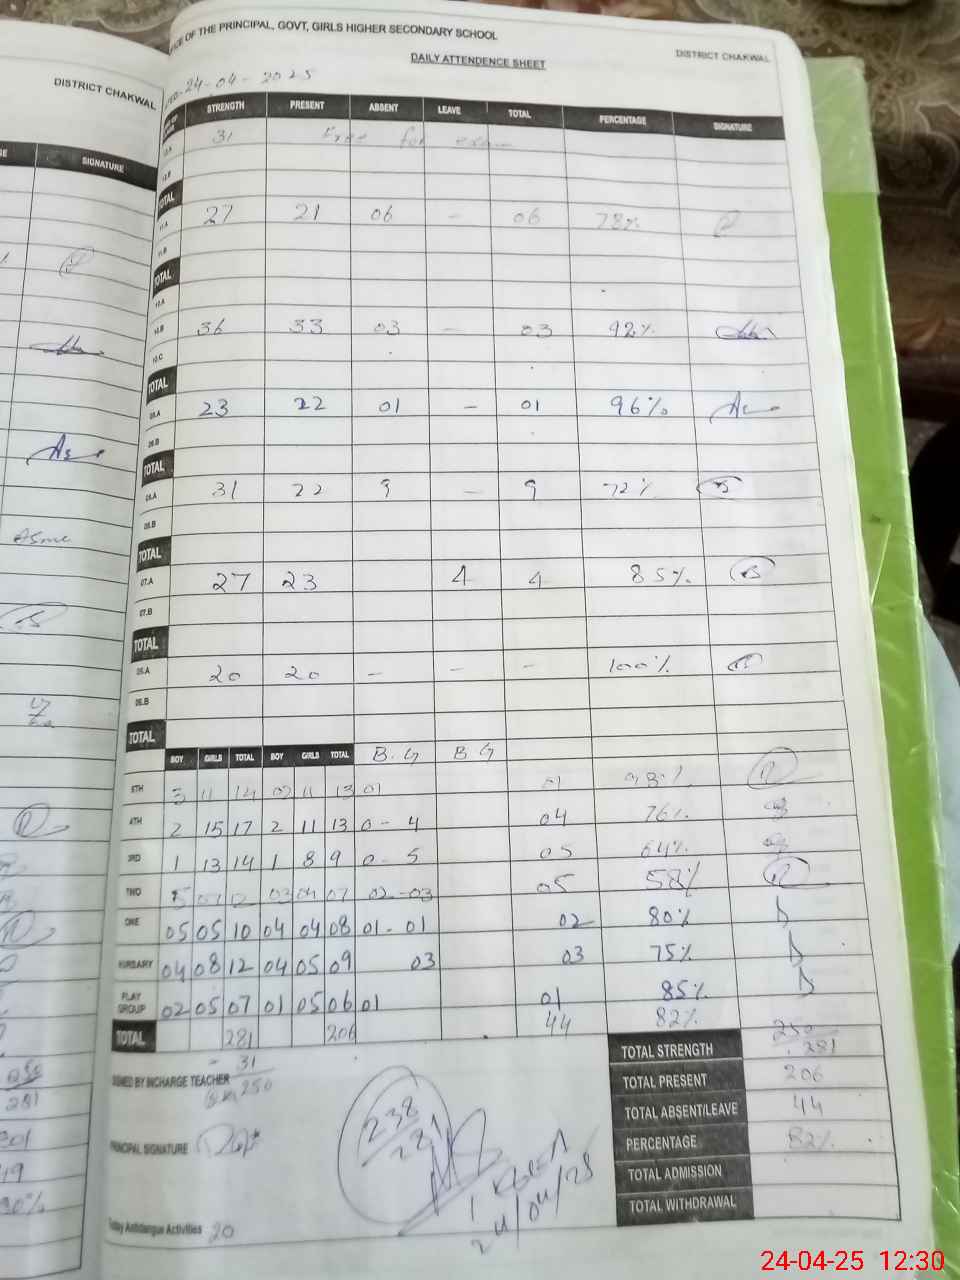 OFFICE OF THE PRINCIPAL, GOVT, GIRLS HIGHER SECONDARY SCHOOL
DAILY ATTENDENCE SHEET
DISTRICT CHAKWAL
DISTRICT CHAKWAL
24-04-2025
STRENGTH PRESENT ABSENT LEAVE TOTAL PERCENTAGE SIGNATURE
SIGNATURE
31 Free for exam
TOTAL
11.A 27 21 06 - 06 78%
11.B
TOTAL
10.A
10.B 36 33 03 - 03 92%
10.C
TOTAL
23 22 01 - 01 96%
TOTAL
31 22 9 - 9 72%
TOTAL
07.A 27 23 4 4 85%
07.B
TOTAL
20 20 - - - 100%
06.B
TOTAL
BOY GIRLS TOTAL BOY GIRLS TOTAL B. G B G
5TH 3 11 14 02 11 13 01 01 98%
4TH 2 15 17 2 11 13 0 - 4 04 76%
3RD 1 13 14 1 8 9 0 - 5 05 64%
TWO 5 07 12 03 04 07 02 - 03 05 58%
ONE 05 05 10 04 04 08 01 - 01 02 80%
NURSARY 04 08 12 04 05 09 03 03 75%
PLAY GROUP 02 05 07 01 05 06 01 01 85%
TOTAL 281 206 44 82%
- 31
250
SIGNED BY INCHARGE TEACHER
PRINCIPAL SIGNATURE
238
21
24/04/25
Today Antidangue Activities 20
TOTAL STRENGTH 250 281
TOTAL PRESENT 206
TOTAL ABSENT/LEAVE 44
PERCENTAGE 82%
TOTAL ADMISSION
TOTAL WITHDRAWAL
250
281
201
49
80%
24-04-25 12:30